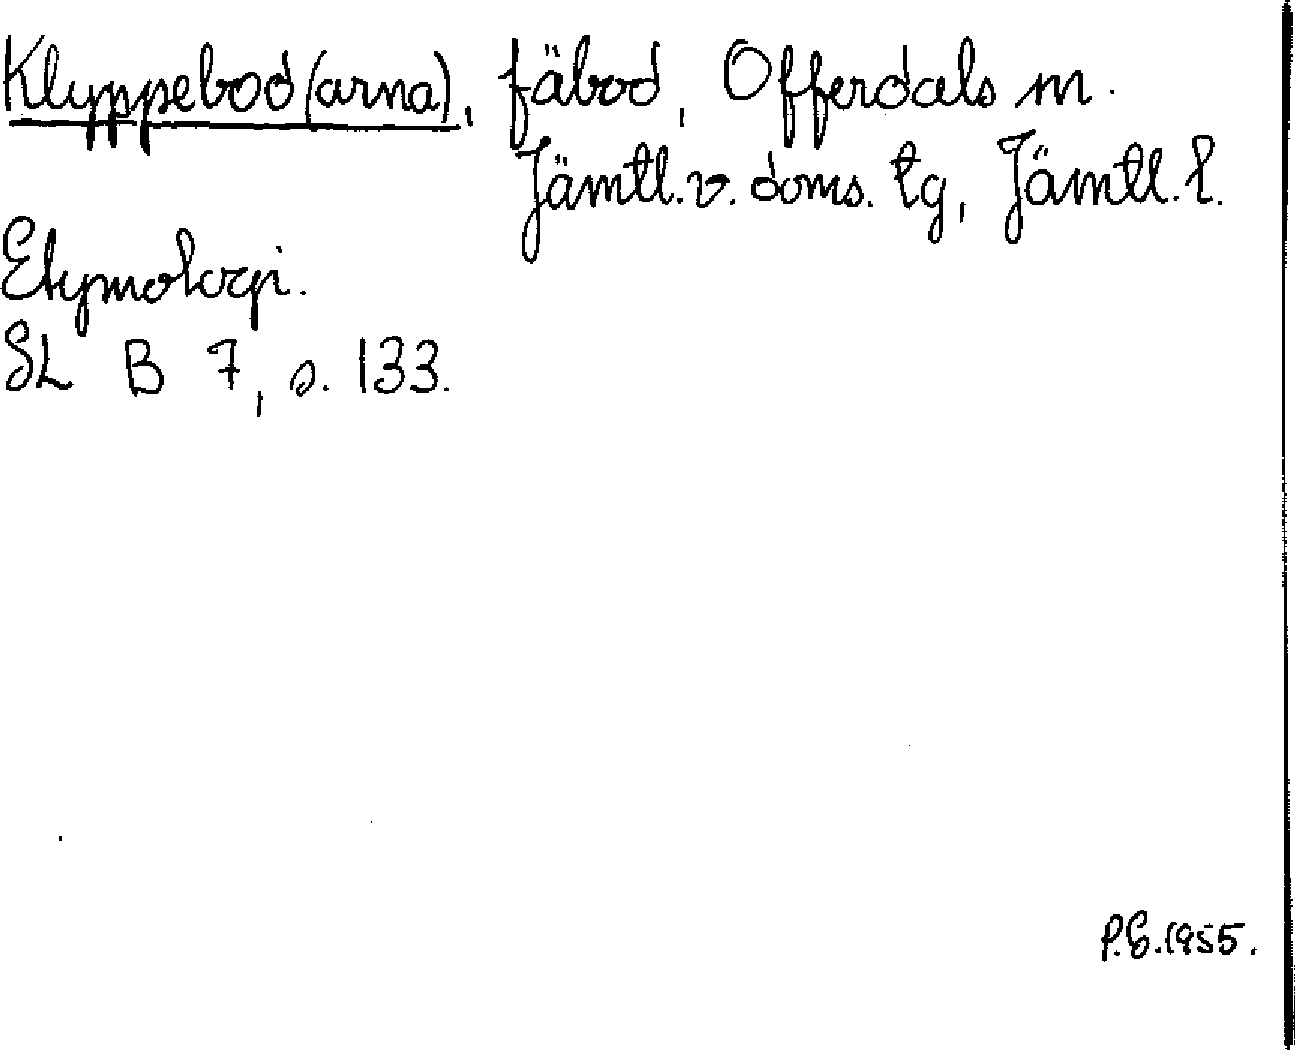 Klyppebod(arna), fäbod, Offerdals sn.
Jämtl. v. doms. tg, Jämtl. l.
Etymologi.
SL B 7, s. 133.
P.G. 1955.